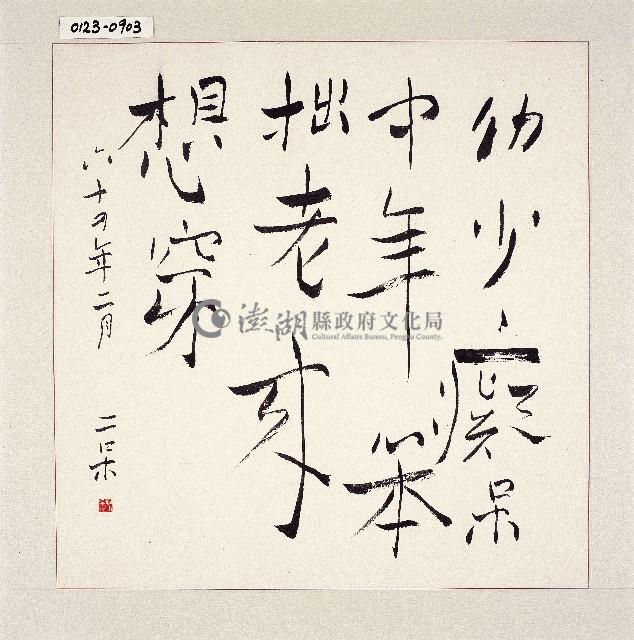 0123-0903
幼少癡呆
中年笨
拙老來
想穿
六十四年二月
二呆
澎湖縣政府文化局
Cultural Affairs Bureau, Penghu County.